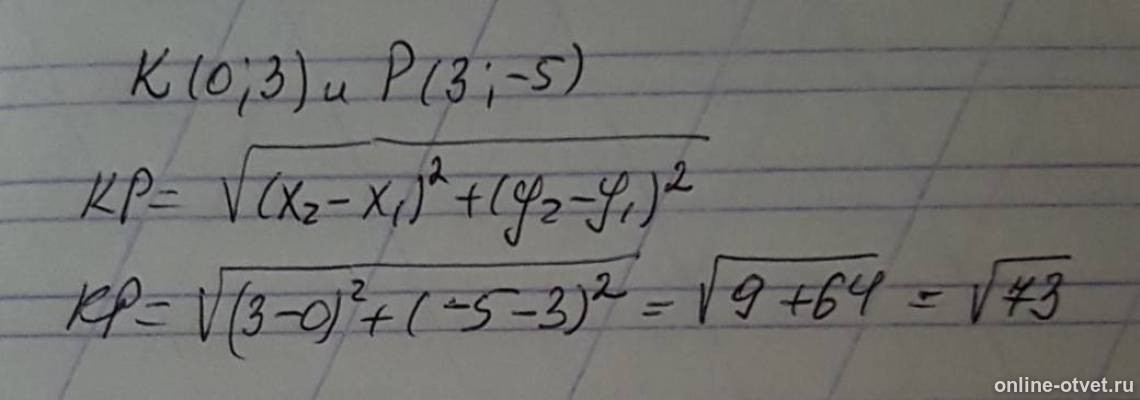 K(0;3) и P(3;-5)
KP= √(x₂-x₁)²+(y₂-y₁)²
KP= √(3-0)²+(-5-3)² = √9+64 = √73
online-otvet.ru